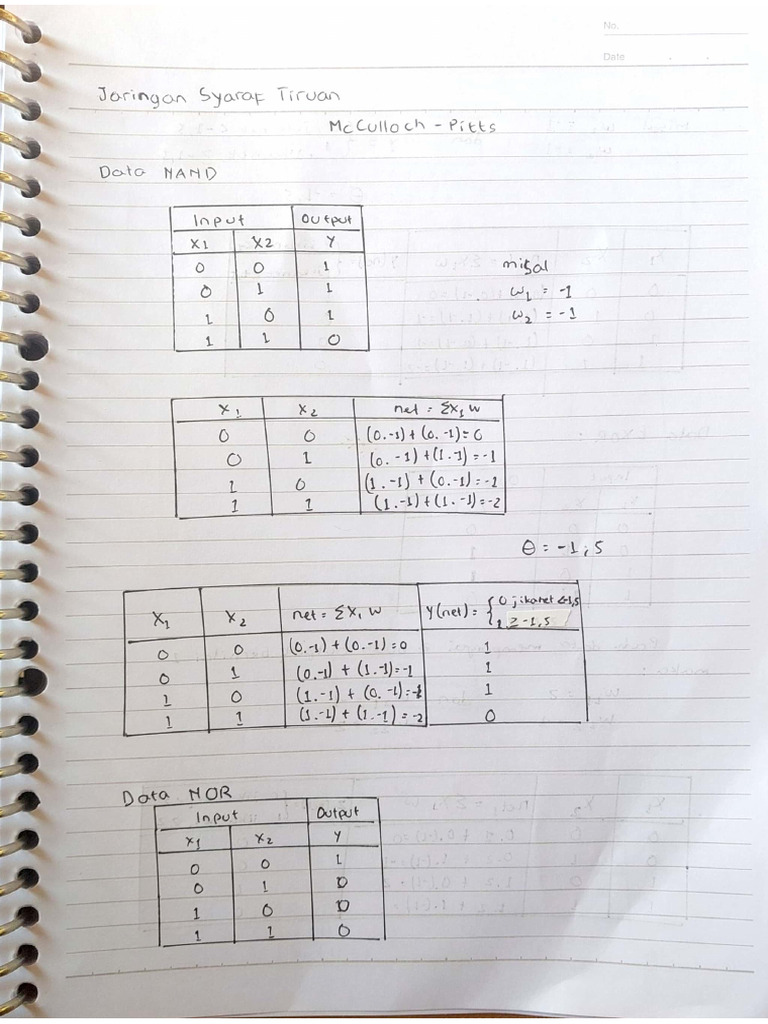 No.
Date
Jaringan Syaraf Tiruan
McCulloch - Pitts
Data NAND
Input Output
X1 X2 Y
0 0 1
0 1 1
1 0 1
1 1 0
misal
w1 = -1
w2 = -1
X1 X2 net = Σx1 w
0 0 (0.-1) + (0.-1) = 0
0 1 (0.-1) + (1.-1) = -1
1 0 (1.-1) + (0.-1) = -1
1 1 (1.-1) + (1.-1) = -2
θ = -1,5
X1 X2 net = Σx1 w Y(net) = { 0 jika net <-1,5
1 ≥ -1,5
0 0 (0.-1) + (0.-1) = 0 1
0 1 (0.-1) + (1.-1) = -1 1
1 0 (1.-1) + (0.-1) = -1 1
1 1 (1.-1) + (1.-1) = -2 0
Data NOR
Input Output
X1 X2 Y
0 0 1
0 1 0
1 0 0
1 1 0